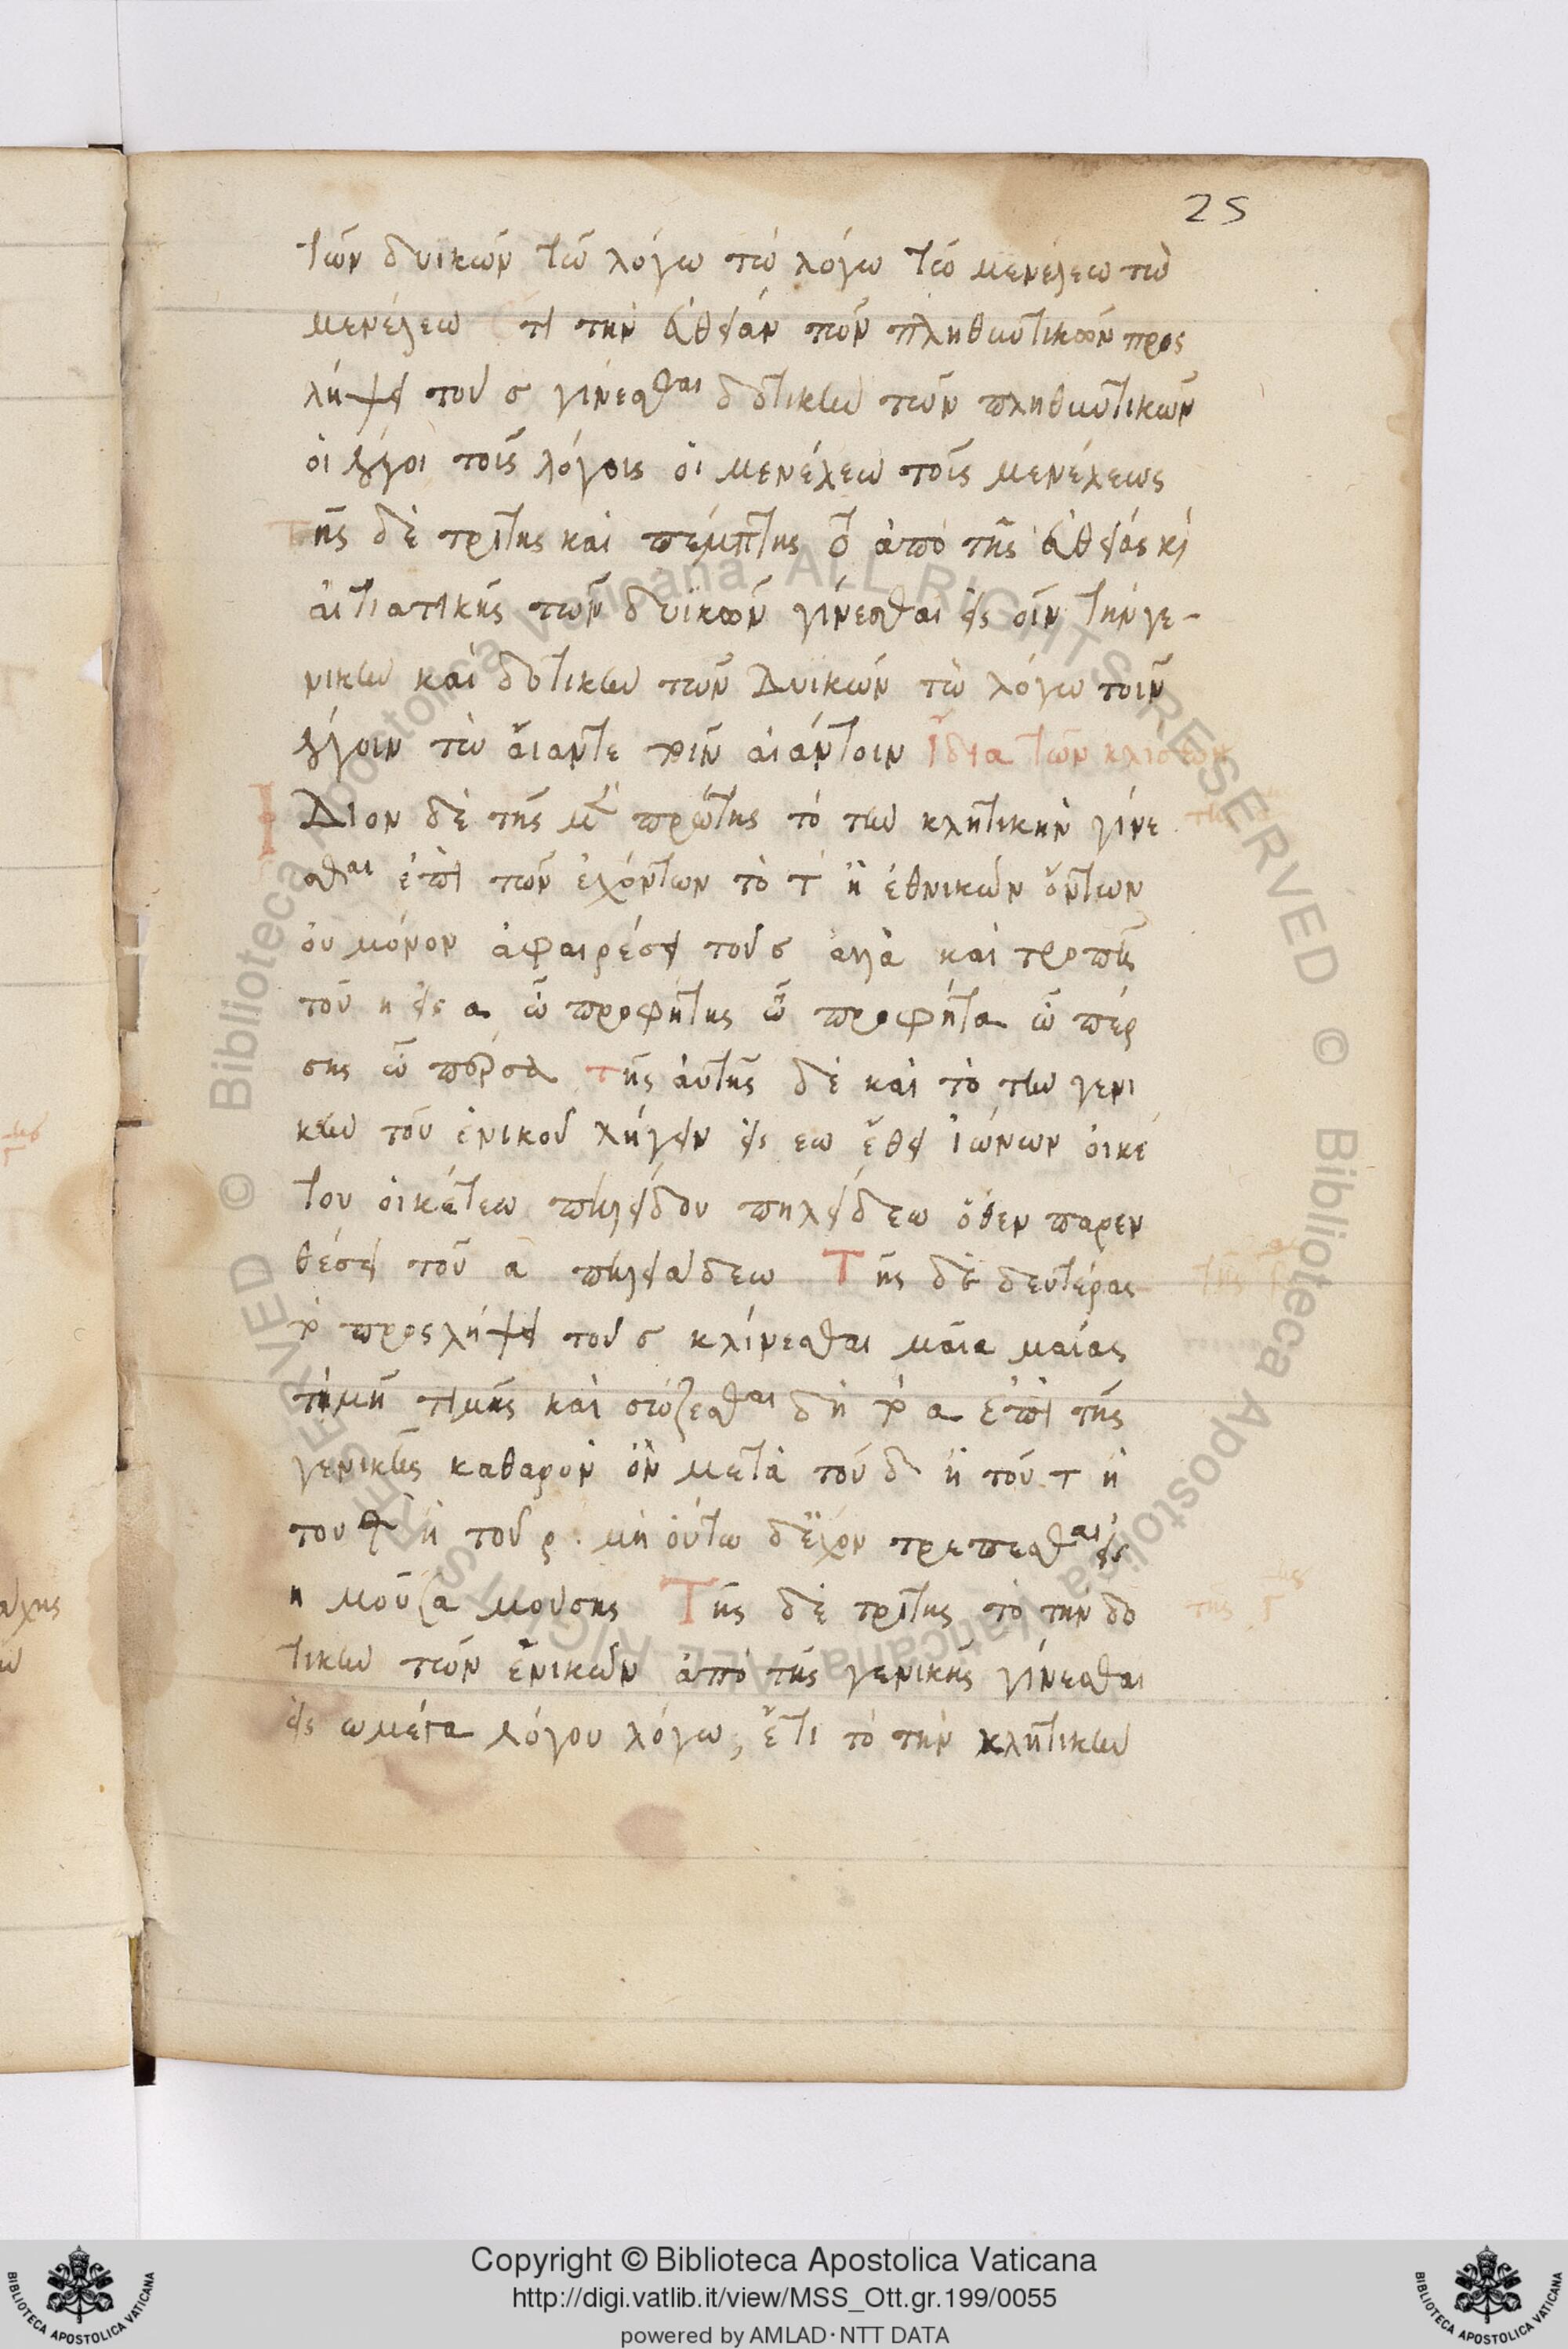 25
τῶν δυικῶν τῶ λόγω τὼ λόγω τῶ μενέλεω τὼ
μενέλεω ἔτι τὴν εὐθεῖαν τῶν πληθυντικῶν προς
λήψει τοῦ σ γίνεσθαι δοτικὴν τῶν πληθυντικῶν
οἱ λόγοι τοῖς λόγοις οἱ μενέλεω τοῖς μενέλεως
Τῆς δὲ τρίτης καὶ πέμπτης τὸ ἀπὸ τῆς εὐθείας καὶ
αἰτιατικῆς τῶν δυϊκῶν γίνεσθαι εἰς οῖν τὴν γε-
νικὴν καὶ δοτικὴν τῶν Δυϊκῶν τὼ λόγω τοῖν
λόγοιν τὼ αἴαντε τοῖν αἰάντοιν ἴδια τῶν κλίσεων
ἴΔιον δὲ τῆς μὲν πρώτης τὸ τὴν κλητικὴν γίνε
σθαι ἐπὶ τῶν ἐχόντων τὸ τ ἢ ἐθνικῶν ὄντων
οὐ μόνον ἀφαιρέσει τοῦ σ ἀλλὰ καὶ τροπῆ
τοῦ η εἰς α ὦ προφήτης ὦ προφῆτα ὦ πέρ
σης ὦ πέρσα τῆς αὐτῆς δὲ καὶ τὸ τὴν γενι
κὴν τοῦ ἑνικοῦ λήγειν εἰς εω ἔθει ἰώνων οἰκέ
του οἰκέτεω πηλείδου πηλείδεω ὅθεν παρεν
θέσει τοῦ α πηλειάδεω Τῆς δὲ δευτέρας
τὸ προςλήψει τοῦ σ κλίνεσθαι μαῖα μαίας
τιμὴ τιμῆς καὶ σώζεσθαι δὴ τὸ α ἐπὶ τῆς
γενικῆς καθαρὸν ὂν μετὰ τοῦ δ ἢ τοῦ τ ἢ
του θ ἢ τοῦ ρ. μὴ οὕτω δ' ἔχον τρέπεσθαι εἰς
η μοῦσα μούσης Τῆς δὲ τρίτης τὸ τὴν δο
τικὴν τῶν ἑνικῶν ἀπὸ τῆς γενικῆς γίνεσθαι
εἰς ω μέγα λόγου λόγω, ἔτι τὸ τὴν κλητικὴν
Copyright © Biblioteca Apostolica Vaticana
http://digi.vatlib.it/view/MSS_Ott.gr.199/0055
powered by AMLAD·NTT DATA